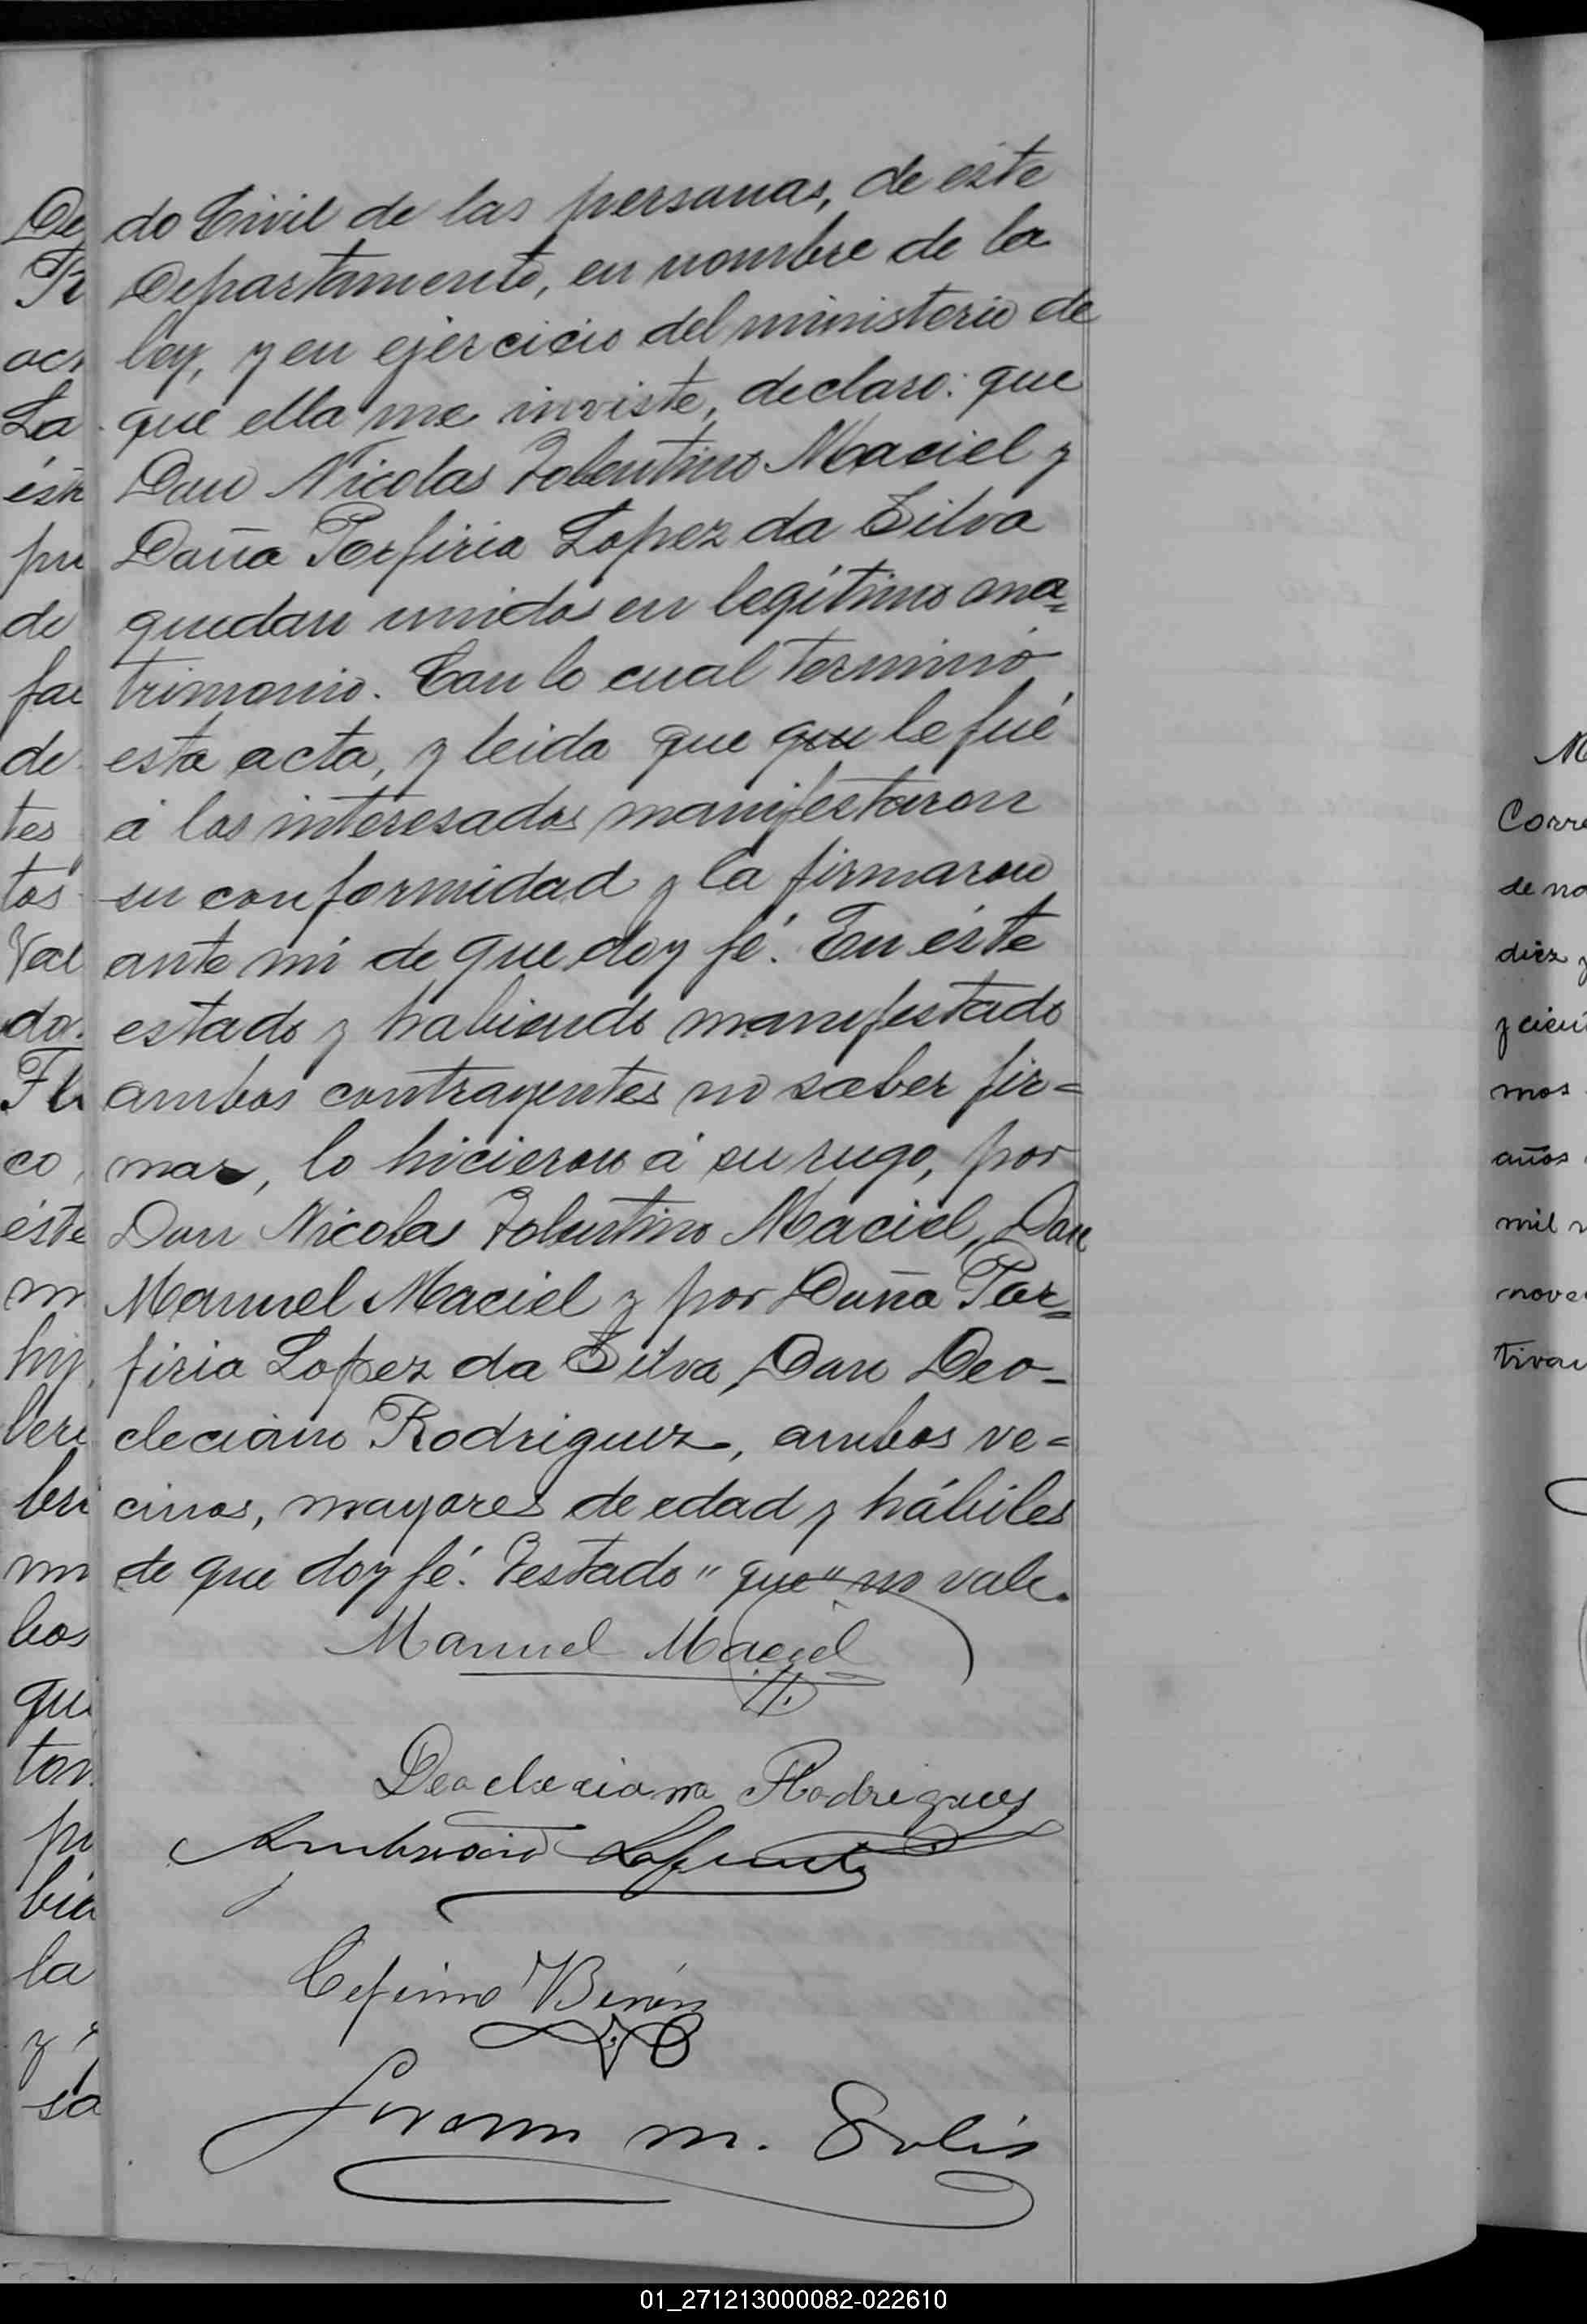 do Civil de las personas, de este
Departamento, en nombre de la
ley, y en ejercicio del ministerio de
que ella me inviste, declaro: que
Don Nicolas Tolentino Maciel y
Doña Porfiria Lopez da Silva
quedan unidos en legítimo ma=
trimonio. Con lo cual terminó
esta acta, y leida que que le fué
á los interesados manifestaron
su conformidad y la firmaron
ante mi de que doy fé. En éste
estado y habiendo manifestado
ambos contrayentes no saber fir=
mar, lo hicieron á su rugo, por
Don Nicolas Tolentino Maciel, Don
Manuel Maciel y por Doña Por=
firia Lopez da Silva, Don Deo-
cleciano Rodriguez, ambos ve=
cinos, mayores de edad y hábiles
de que doy fé. Testado "que" no vale.
Manuel Maciel
Deocleciano Rodrigues
Ambrosio Lafuente
Ceferino
m. Solis
01_271213000082-022610